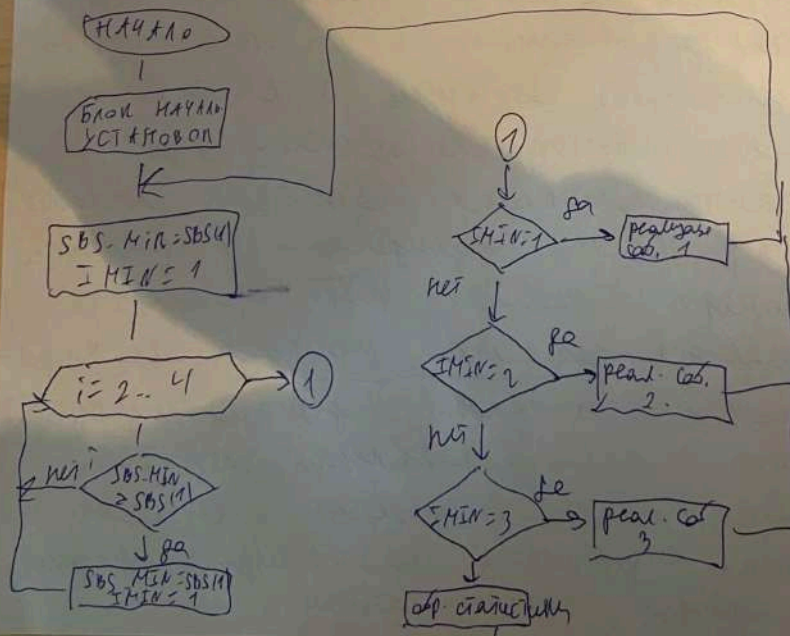 НАЧАЛО
БЛОК НАЧАЛЬ
УСТАНОВОК
SBS-MIN=SBS(1)
IMIN=1
i=2..4
1
нет
SBS-MIN
≥SBS(1)
да
SBS MIN=SBS(1)
IMIN=1
1
IMIN=1
да
соб. 1
нет
IMIN=2
да
реал. соб.
2.
нет
IMIN=3
да
реал. соб
3
обр. статистики